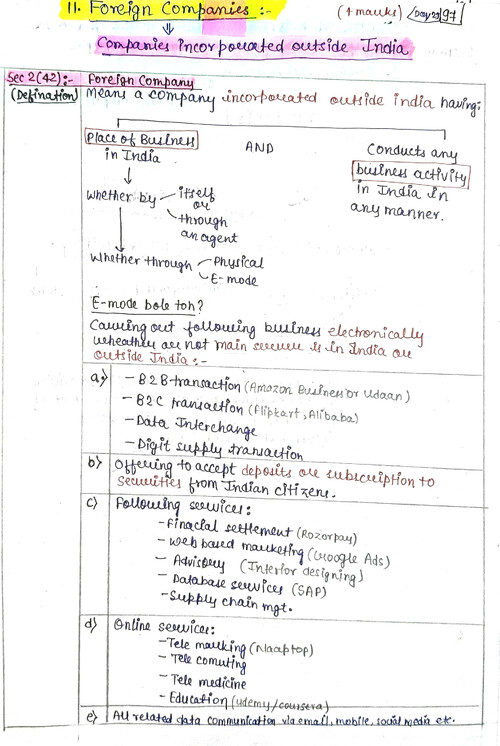 11. Foreign Companies :-
(4 marks)
Companies incorporated outside India
Sec 2(42):- Foreign Company
(Defination) Means a company incorporated outside india having:
Place of Business
in India
AND
Conducts any
business activity
in India in
any manner.
whether by itself
or
through
an agent
whether through Physical
E-mode
E-mode bole toh?
Carring out following business electronically
wheather are not main server is in India or
outside India :-
a) - B2B transaction (Amazon Business or Udaan)
- B2C transaction (Flipkart, Alibaba)
- Data Interchange
- Digit supply transaction
b) Offering to accept deposits or subscription to
securities from Indian citizens.
c) Following services:
- Finacial settlement (Rozorpay)
- Web based marketing (Google Ads)
- Advisory (Interior designing)
- Database services (SAP)
- Supply chain mgt.
d) Online services:
- Tele marking (Naaptop)
- Tele comuting
- Tele medicine
- Education (udemy/coursera)
e) All related data communication via email, mobile, social media etc.